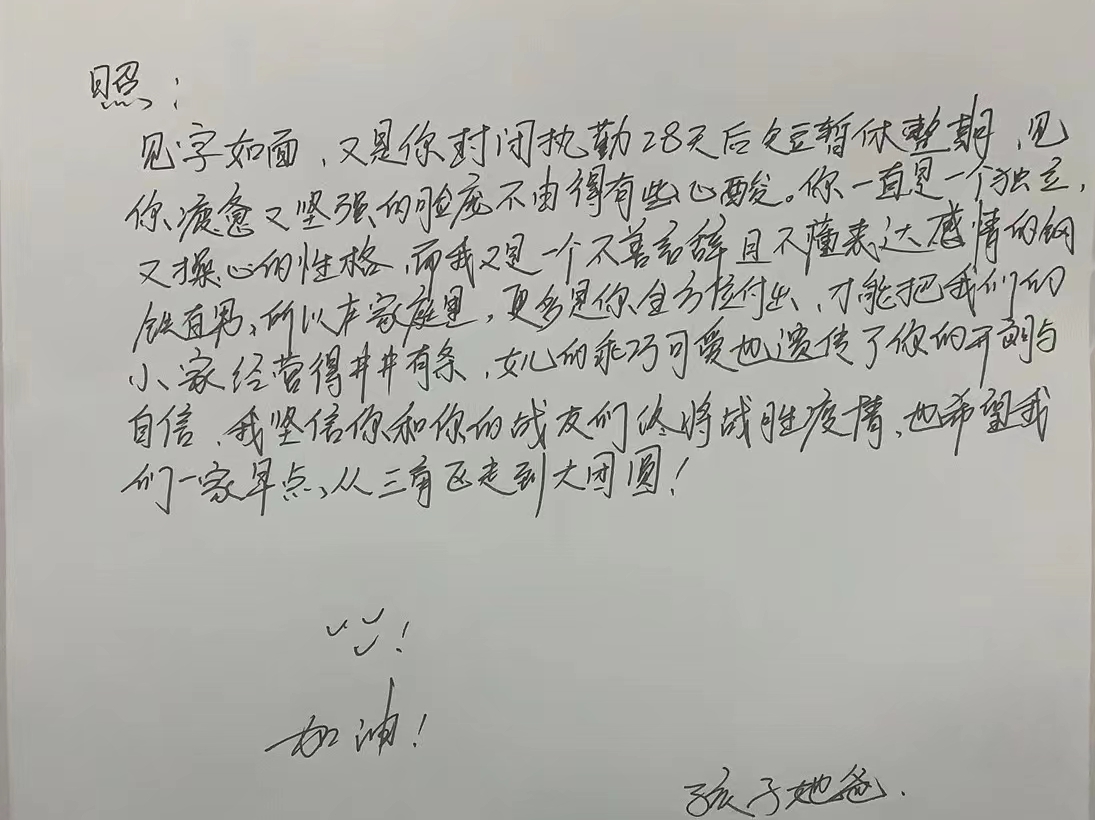 照：
见字如面，又是你封闭执勤28天后短暂休整期，见
你疲惫又坚强的脸庞不由得有些心酸。你一直是一个独立，
又操心的性格，而我又是一个不善言辞且不懂表达感情的钢
铁直男，所以在家庭里，更多是你全方位付出，才能把我们的
小家经营得井井有条，女儿的乖巧可爱也遗传了你的开朗与
自信，我坚信你和你的战友们终将战胜疫情，也希望我
们一家早点从三角区走到大团圆！
！
加油！
孩子她爸.